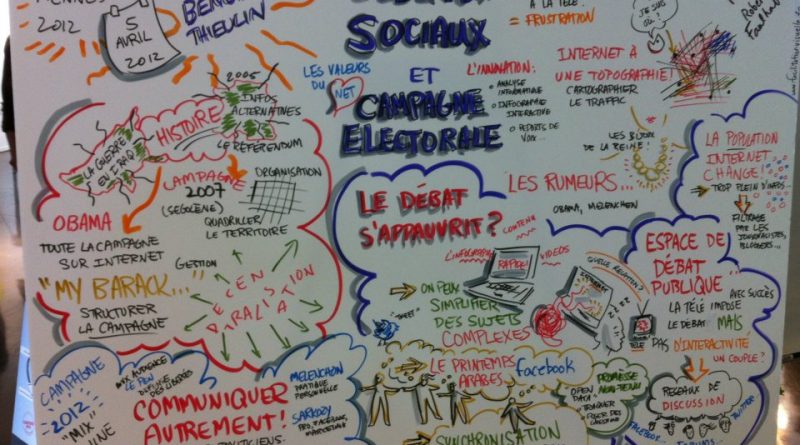 2012
5
AVRIL
2012
THIEULIN
SOCIAUX
ET
CAMPAGNE
ELECTORALE
LES VALEURS
DU NET
À LA TÉLÉ.
= FRUSTRATION
L'INNOVATION:
ANALYSE
INFORMATIQUE
INFOGRAPHIE
INTERACTIVE
REPORTS DE
VOIX...
JE SUIS
OÙ?
INTERNET À
UNE TOPOGRAPHIE!
CARTOGRAPHIER
LE TRAFFIC
LES BIJOUX
DE LA REINE!
LES RUMEURS...
OBAMA, MELENCHON
LA POPULATION
INTERNET
CHANGE!
TROP PLEIN D'INFOS...
FILTRAGE
PAR LES
JOURNALISTES,
BLOGGERS...
HISTOIRE
LA GUERRE
EN IRAQ
2005
INFOS
ALTERNATIVES
LE RÉFÉRENDUM
CAMPAGNE
2007
(SEGOLÈNE)
ORGANISATION
QUADRILLER
LE TERRITOIRE
OBAMA
TOUTE LA CAMPAGNE
SUR INTERNET
"MY BARACK..."
STRUCTURER
LA CAMPAGNE
GESTION
DECENTRALISATION
LE DÉBAT
S'APPAUVRIT?
CONTENU
L'INFOGRAPHIE
RAPIDE!
VIDEOS
ON PEUX
SIMPLIFIER
DES SUJETS
COMPLEXES
"TWEET"
QUELLE RELATION?
ESPACE DE
DÉBAT
PUBLIQUE...
AVEC SUCCÈS
LA TÉLÉ IMPOSE
LE DÉBAT MAIS
PAS D'INTERACTIVITÉ
UN COUPLE?
RESEAUX DE
DISCUSSION
FACEBOOK
TWITTER
CAMPAGNE
2012
"MIX"
LE PEN
COMMUNIQUER
AUTREMENT!
MELENCHON
PRATIQUE
PERSONNELLE
SARKOZY
LE PRINTEMPS
ARABES
Facebook
OPEN
DATA
PROMESSE
NON TENU
SYNCHRONISATION